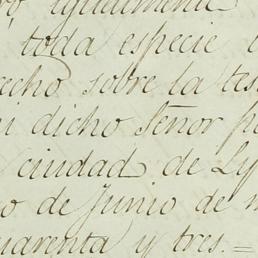 igualmente
toda especie
echo sobre la tes
i dicho Señor p
ciudad de Ly
o de Junio de
uarenta y tres. =